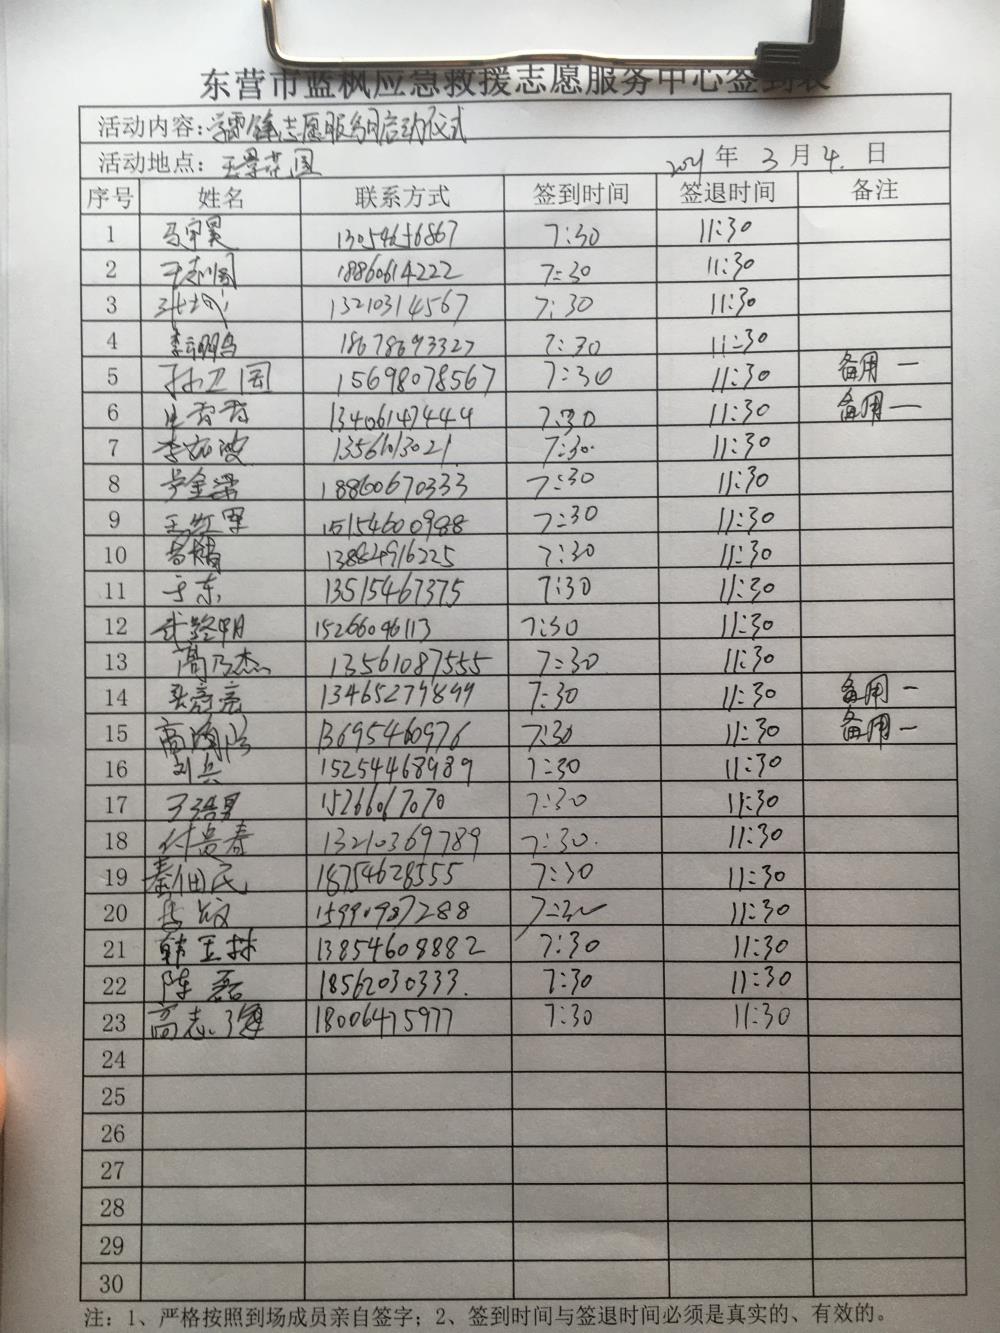 东营市蓝枫应急救援志愿服务中心签到表
活动内容：学雷锋志愿服务月启动仪式
活动地点：玉景花园 2021年3月4.日
序号 姓名 联系方式 签到时间 签退时间 备注
1 马宇昊 13054656867 7:30 11:30
2 18860614222 7:30 11:30
3 13210314567 7:30 11:30
4 李鹏 18678693327 7:30 11:30
5 孙卫国 15698078567 7:30 11:30 备用一
6 13406147444 7:30 11:30 备用一
7 李 1356103021 7:30 11:30
8 18860670333 7:30 11:30
9 王红军 15154600988 7:30 11:30
10 13884916225 7:30 11:30
11 于东 13515467375 7:30 11:30
12 15266096113 7:30 11:30
13 高乃杰 13561087555 7:30 11:30
14 13465279899 7:30 11:30 备用一
15 高 13695460976 7:30 11:30 备用一
16 刘兵 15254468989 7:30 11:30
17 15266067070 7:30 11:30
18 付春 13210369789 7:30 11:30
19 秦佃民 18754628555 7:30 11:30
20 15990987288 7:30 11:30
21 韩玉林 13854608882 7:30 11:30
22 陈磊 18562030333. 7:30 11:30
23 高志强 18006475977 7:30 11:30
24
25
26
27
28
29
30
注：1、严格按照到场成员亲自签字；2、签到时间与签退时间必须是真实的、有效的。